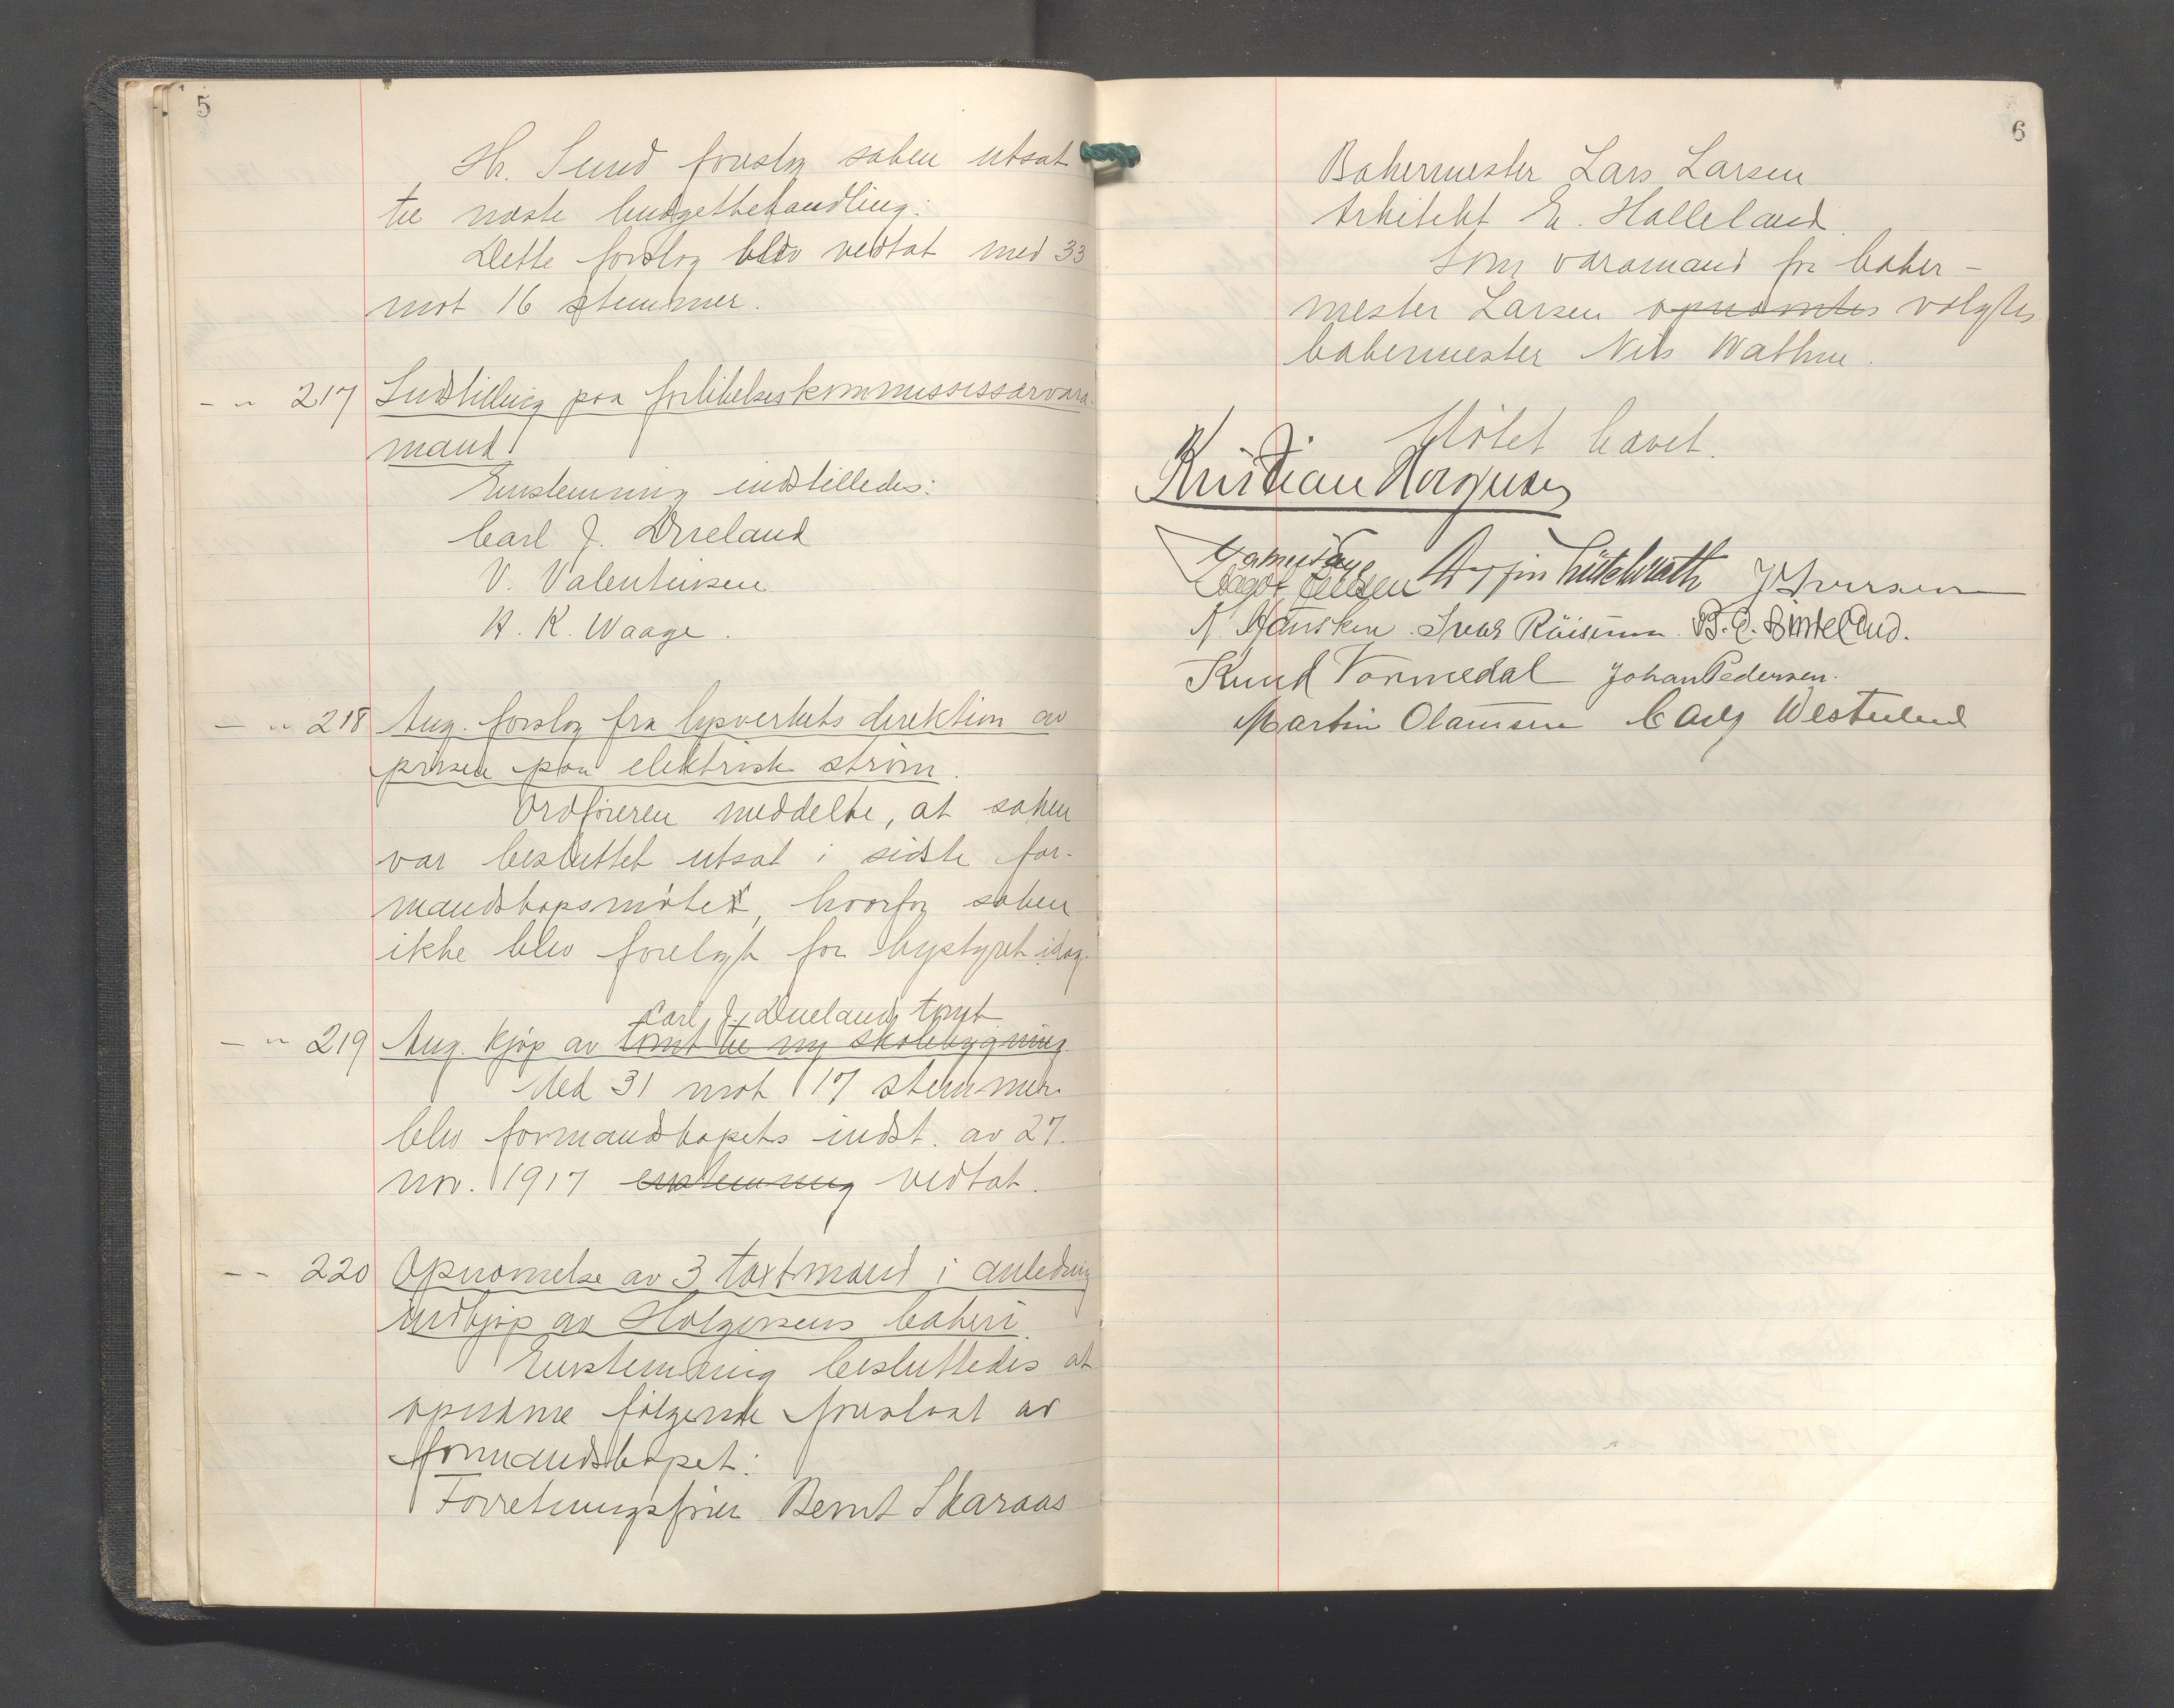 5
Hr. Sund foreslog saken utsat
til næste budgetbehandling.
Dette forslag blev vedtat med 33
mot 16 stemmer.
- " 217 Indstilling paa forlikelseskommississærvara-
mand.
Enstemmig indstilledes:
Carl J. Dueland
V. Valentinsen
H. K. Waage.
- " 218 Ang. forslag fra lysverkets direktion av
prisen paa elektrisk strøm.
Ordføreren meddelte, at saken
var besluttet utsat i sidste for-
mandskapsmøte, hvorfor saken
ikke blev forelagt for bystyret idag.
Carl J. Dueland, tomt
- " 219 Ang. kjøp av tomt til ny skolebygning.
Med 31 mot 17 stemmer
blev formandskapets indst. av 27.
nov. 1917 enstemmig vedtat.
- - 220 Opnævnelse av 3 takstmænd i anledning
indkjøp av Holgersens bakeri.
Enstemmig besluttedes at
opnævne følgende foreslaat av
formandskapet:
Forretningsfører Bernt Skaraas
6
Bakermester Lars Larsen
Arkitekt E. Halleland.
Som varamand for baker-
mester Larsen opnævntes valgtes
bakermester Nils Wathne.
Møtet hævet.
Kristian Haagensen
J. Iversen
Knud Vormedal Johan Pedersen.
Martin Olamsen